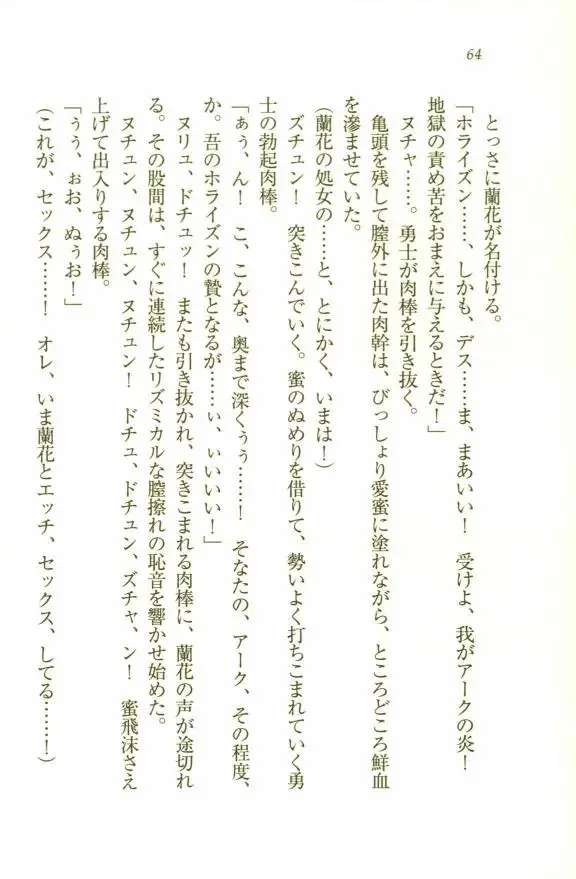 64
とっさに蘭花が名付ける。
「ホライズン……、しかも、デス……ま、まあいい！　受けよ、我がアークの炎！
地獄の責め苦をおまえに与えるときだ！」
ヌチャ……。勇士が肉棒を引き抜く。
亀頭を残して膣外に出た肉幹は、びっしょり愛蜜に塗れながら、ところどころ鮮血
を滲ませていた。
（蘭花の処女の……と、とにかく、いまは！）
ズチュン！　突きこんでいく。蜜のぬめりを借りて、勢いよく打ちこまれていく勇
士の勃起肉棒。
「ぁぅ、ん！　こ、こんな、奥まで深くぅぅ……！　そなたの、アーク、その程度、
か。吾のホライズンの贄となるが……ぃ、ぃいいい！」
ヌリュ、ドチュッ！　またも引き抜かれ、突きこまれる肉棒に、蘭花の声が途切れ
る。その股間は、すぐに連続したリズミカルな膣擦れの恥音を響かせ始めた。
ヌチュン、ヌチュン、ヌチュン！　ドチュ、ドチュン、ズチャ、ン！　蜜飛沫さえ
上げて出入りする肉棒。
「ぅぅ、ぉお、ぬぅお！」
（これが、セックス……！　オレ、いま蘭花とエッチ、セックス、してる……！）